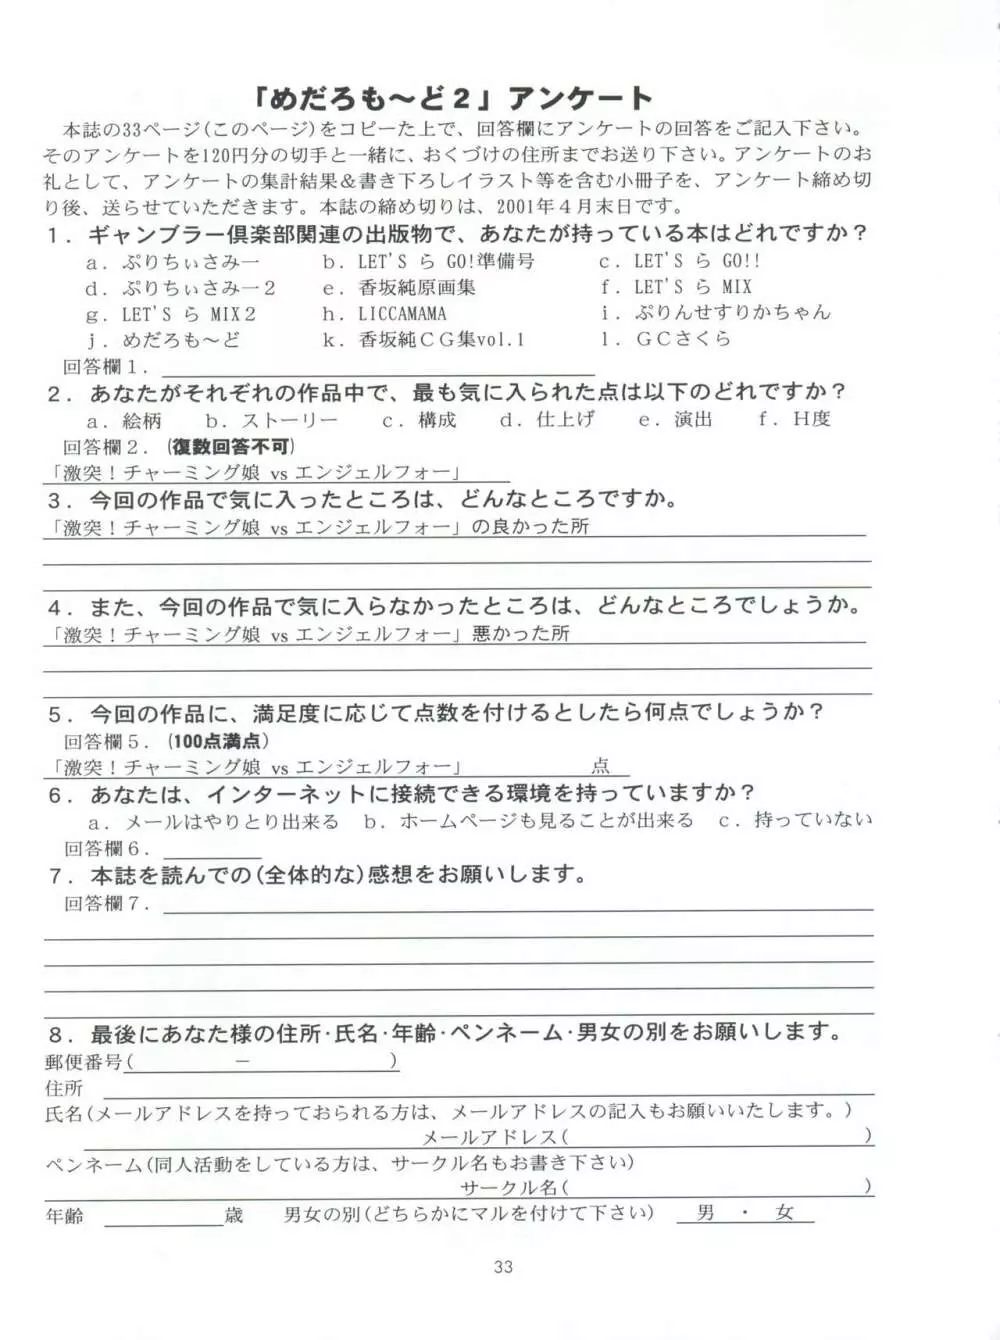 「めだろも～ど２」アンケート
本誌の33ページ(このページ)をコピーた上で、回答欄にアンケートの回答をご記入下さい。
そのアンケートを120円分の切手と一緒に、おくづけの住所までお送り下さい。アンケートのお
礼として、アンケートの集計結果＆書き下ろしイラスト等を含む小冊子を、アンケート締め切
り後、送らせていただきます。本誌の締め切りは、2001年４月末日です。
１．ギャンブラー倶楽部関連の出版物で、あなたが持っている本はどれですか？
ａ．ぷりちぃさみー　ｂ．LET'S ら GO!準備号　ｃ．LET'S ら GO!!
ｄ．ぷりちぃさみー２　ｅ．香坂純原画集　ｆ．LET'S ら MIX
ｇ．LET'S ら MIX２　ｈ．LICCAMAMA　ｉ．ぷりんせすりかちゃん
ｊ．めだろも～ど　ｋ．香坂純ＣＧ集vol.1　ｌ．ＧＣさくら
回答欄１．
２．あなたがそれぞれの作品中で、最も気に入られた点は以下のどれですか？
ａ．絵柄　ｂ．ストーリー　ｃ．構成　ｄ．仕上げ　ｅ．演出　ｆ．Ｈ度
回答欄２．(復数回答不可)
「激突！チャーミング娘 vs エンジェルフォー」
３．今回の作品で気に入ったところは、どんなところですか。
「激突！チャーミング娘 vs エンジェルフォー」の良かった所
４．また、今回の作品で気に入らなかったところは、どんなところでしょうか。
「激突！チャーミング娘 vs エンジェルフォー」悪かった所
５．今回の作品に、満足度に応じて点数を付けるとしたら何点でしょうか？
回答欄５．(100点満点)
「激突！チャーミング娘 vs エンジェルフォー」　点
６．あなたは、インターネットに接続できる環境を持っていますか？
ａ．メールはやりとり出来る　ｂ．ホームページも見ることが出来る　ｃ．持っていない
回答欄６．
７．本誌を読んでの(全体的な)感想をお願いします。
回答欄７．
８．最後にあなた様の住所・氏名・年齢・ペンネーム・男女の別をお願いします。
郵便番号(　－　)
住所
氏名(メールアドレスを持っておられる方は、メールアドレスの記入もお願いいたします。)
メールアドレス(　)
ペンネーム(同人活動をしている方は、サークル名もお書き下さい)
サークル名(　)
年齢　歳　男女の別(どちらかにマルを付けて下さい)　男　・　女
33